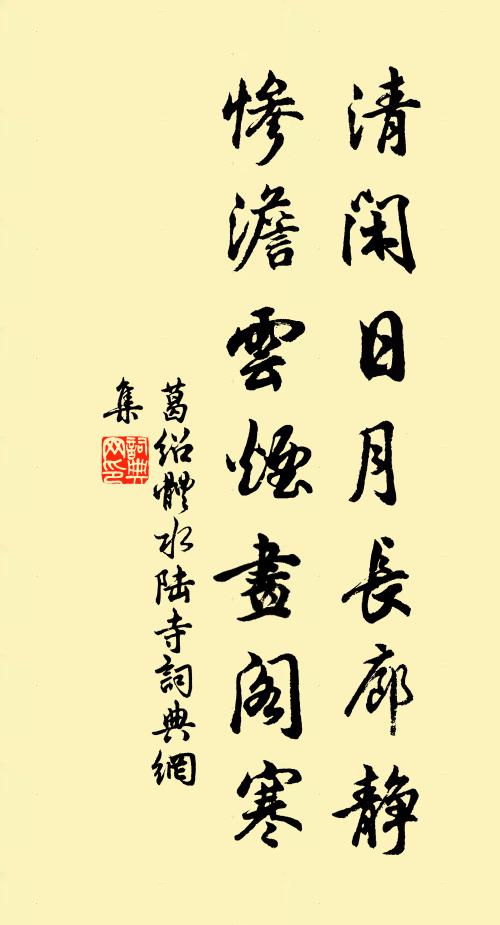 清閑日月長廊靜
慘澹雲煙畫閣寒
葛紹體水陆寺詞典網
集
詞典
网印